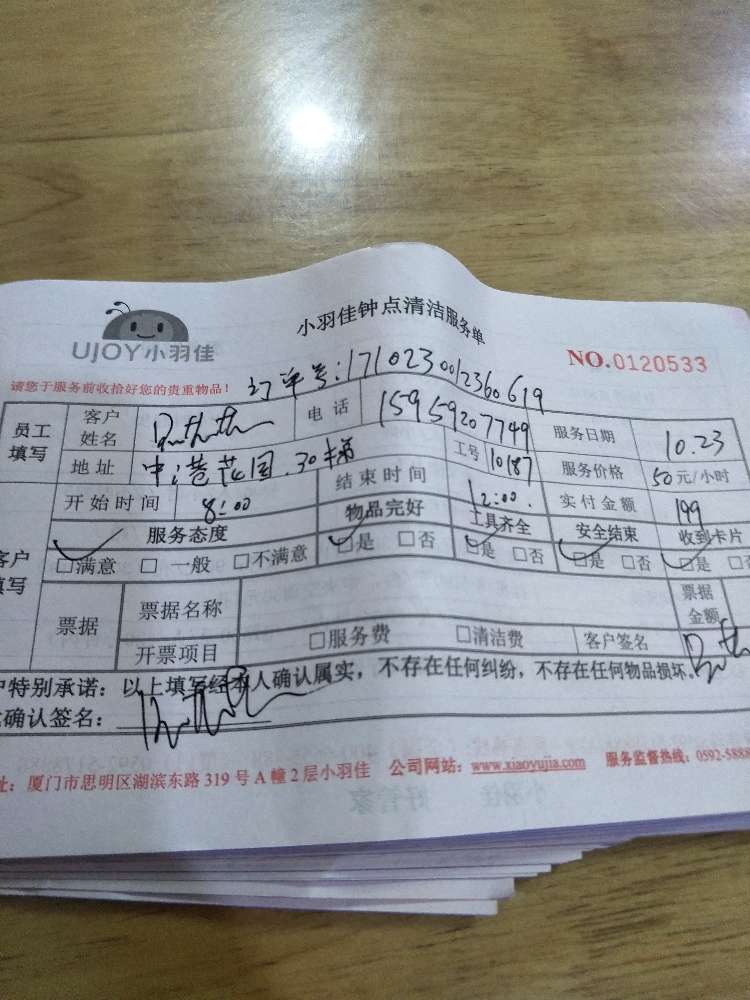 UJOY小羽佳
小羽佳钟点清洁服务单
NO.0120533
请您于服务前收拾好您的贵重物品!
订单号:1710230012360619
员工填写 客户姓名 电话 15959207749 服务日期 10.23
地址 中港花园.30 工号 10187 服务价格 50元/小时
开始时间 8:00 结束时间 12:00. 实付金额 199
客户填写 服务态度 物品完好 工具齐全 安全结束 收到卡片
□满意 □一般 □不满意 □是 □否 □是 □否 □是 □否 □是 □否
票据 票据名称 票据金额
开票项目 □服务费 □清洁费 客户签名
户特别承诺:以上填写经本人确认属实,不存在任何纠纷,不存在任何物品损坏。
确认签名:
址:厦门市思明区湖滨东路319号A幢2层小羽佳 公司网站:www.xiaoyujia.com 服务监督热线:0592-5888